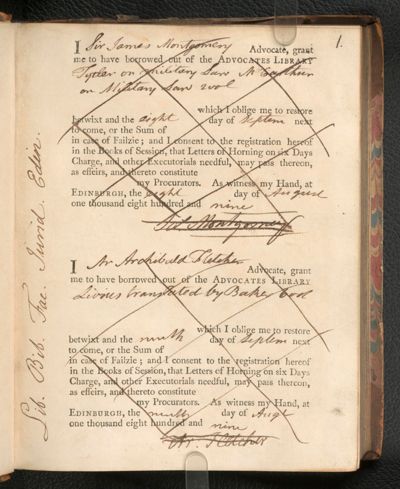 1.
I Sir James Montgomery Advocate, grant
me to have borrowed out of the ADVOCATES LIBRARY
Tytler on Military Law McArthur
on Military Law 2 vol
which I oblige me to restore
betwixt and the eight day of Septem next
to come, or the Sum of
in case of Failzie; and I consent to the registration hereof
in the Books of Session, that Letters of Horning on six Days
Charge, and other Executorials needful, may pass thereon,
as effeirs, and thereto constitute
my Procurators. As witness my Hand, at
EDINBURGH, the eight day of August
one thousand eight hundred and nine
Montgomery
I Mr Archibald Fletcher
Advocate, grant
me to have borrowed out of the ADVOCATES LIBRARY
Livius translated by Baker
which I oblige me to restore
betwixt and the ninth day of Septem next
to come, or the Sum of
in case of Failzie; and I consent to the registration hereof
in the Books of Session, that Letters of Horning on six Days
Charge, and other Executorials needful, may pass thereon,
as effeirs, and thereto constitute
my Procurators. As witness my Hand, at
EDINBURGH, the ninth day of Augt
one thousand eight hundred and nine
Ar. Fletcher
Lib. Bib. Fac. Jurid. Edin.